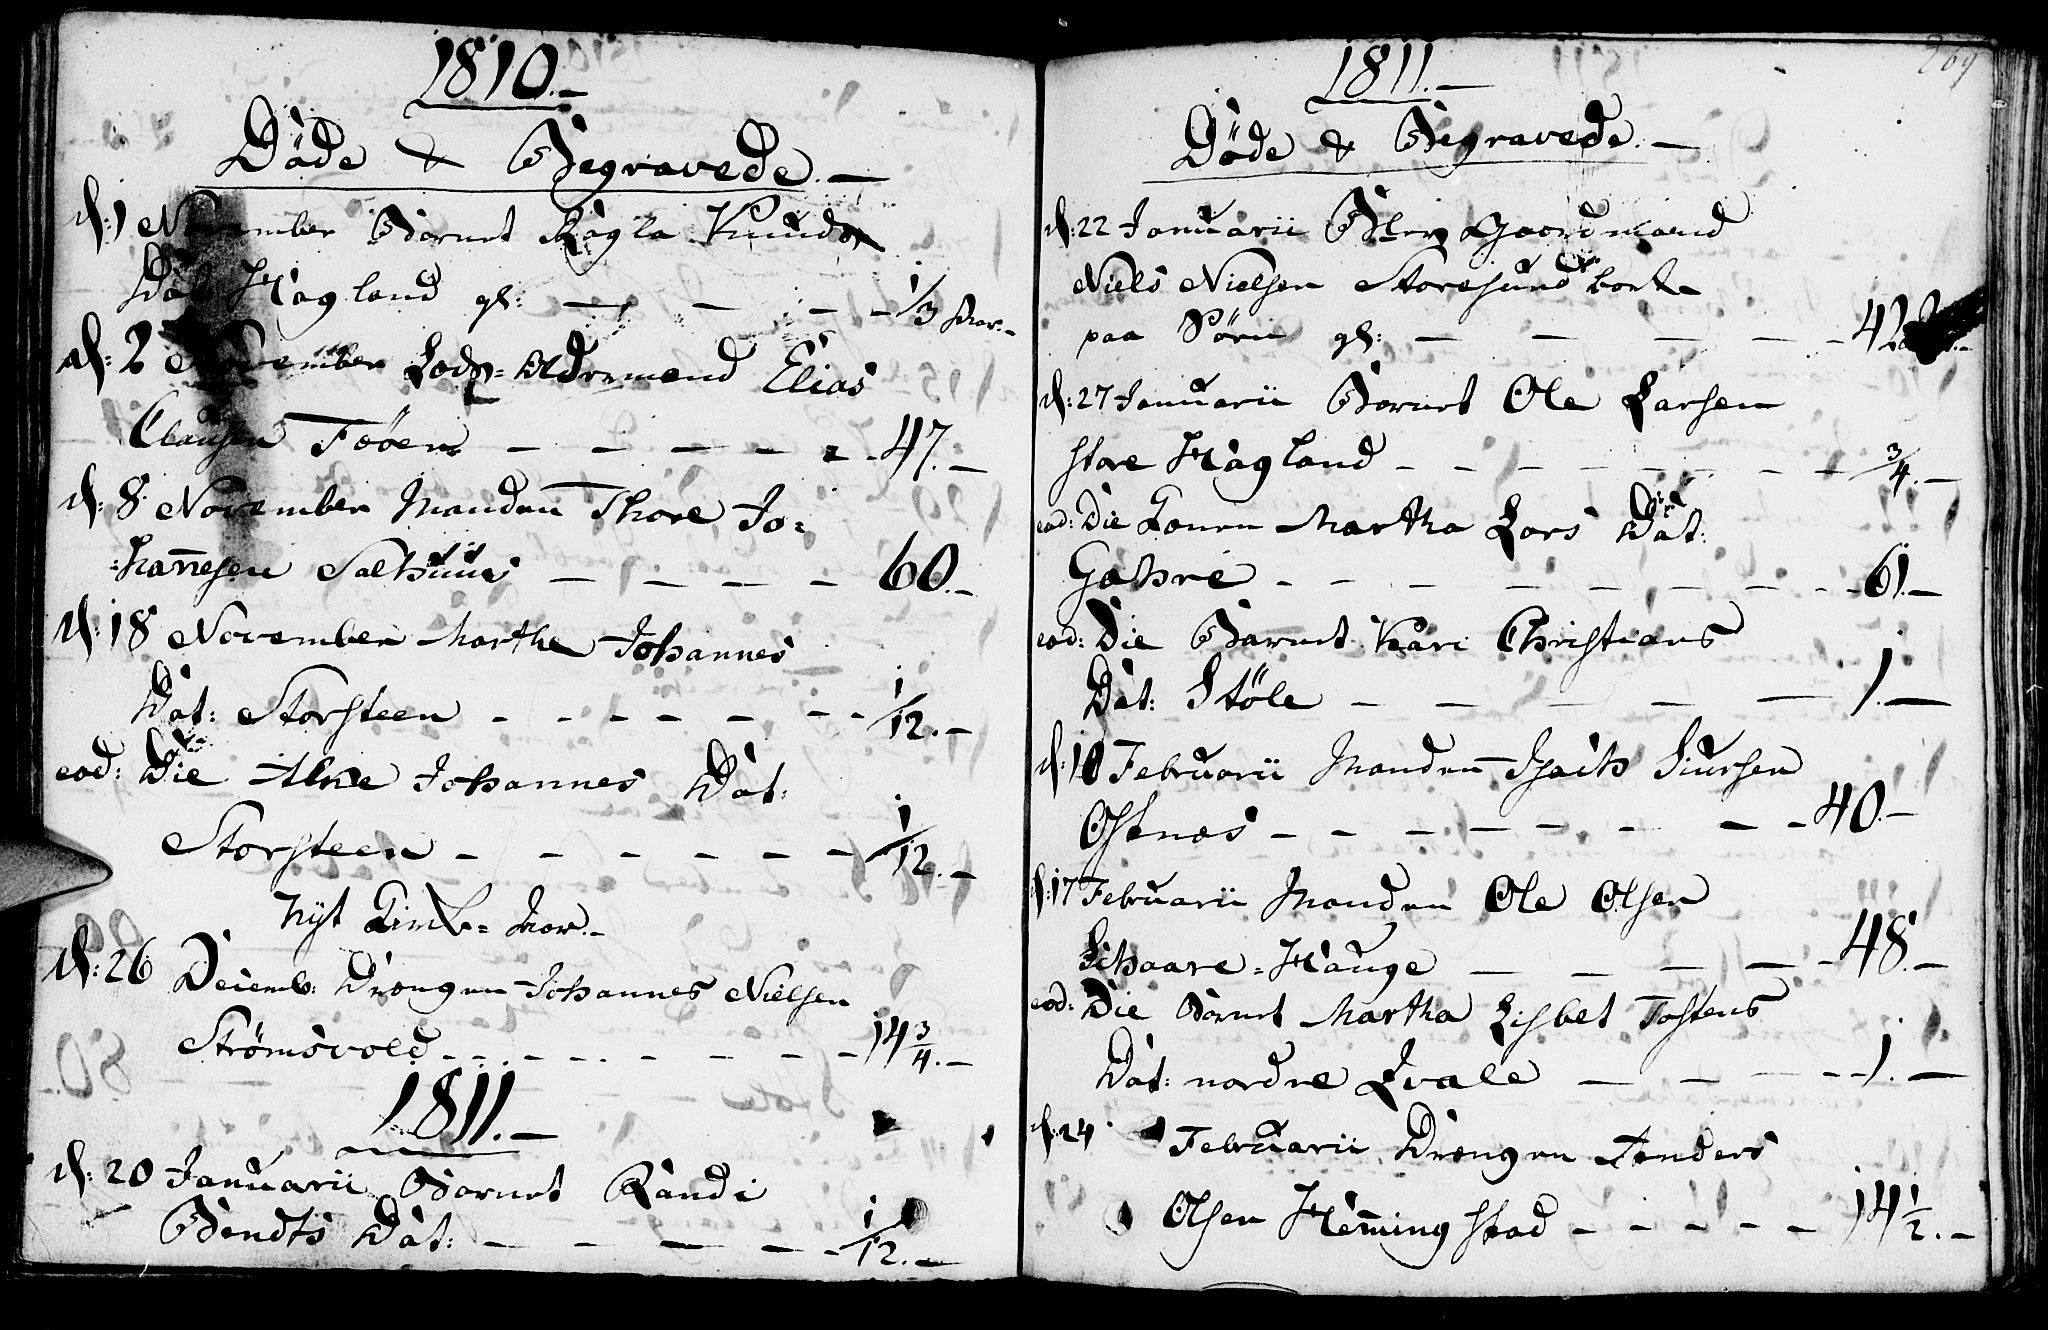 1810.-
Döde & Begravede.-
d: 1 November Barnet Ragla Knuds
Dat Hagland gl: - - - - 1/3 Aar.-
d: 2 November Lods-Oldermand Elias
Clausen Føøen - - - - - - 47.-
d: 8 November Manden Thore Jo=
=hannesen Salhuus - - - - 60.-
d: 18 November Marthe Johannes
Dat: Storsteen - - - - - - - 1/12.-
eod: Die Alke Johannes Dat:
Storsteen - - - - - - 1/12.-
Nyt Kirke-Aar.-
d: 26 Decemb: Drengen Johannes Nielsen
Strømsvold - - - - - - - 14 3/4.-
1811.-
d: 20 Januarii Barnet Randi
Bendts Dat: - - - - - 1/12.-
269
1811.-
Döde & Begravede.-
d: 22 Januarii Gaardmand
Niels Nielsen Storesund bort
paa Søen gl: - - - - - 42
d: 27 Januarii Barnet Ole Larsen
store Hagland - - - - - - - 3/4.-
eod: Die Konen Martha Lars Dat:
Gahre - - - - - - - - - 61.-
eod: Die Barnet Kari Christians
Dat: Støle - - - - - 1.-
d: 10 Februarii Manden Siursen
Ostnæs - - - - - - - - 40.-
d: 17 Februarii Manden Ole Olsen
Schaare-Hauge - - - - - 48.-
eod: Die Barnet Martha Lisbet Tostens
Dat: nordre Qvale - - - - - 1.-
d: 24 Februarii Drengen Anders
Olsen Hemmingstad - - - - - 14 1/2.-